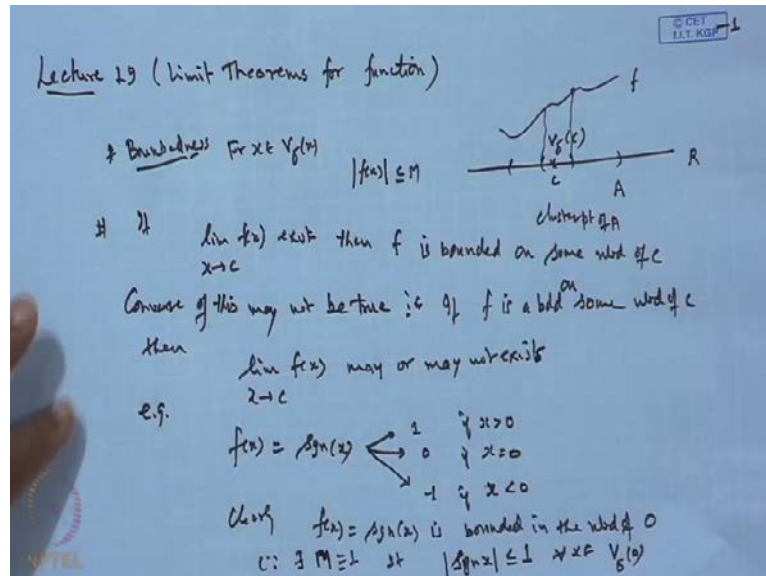 © CET
I.I.T. KGP
-1
Lecture 19 (Limit Theorems for function)
f
# Boundedness For x ∈ V_δ(x)
V_δ(c)
|f(x)| ≤ M
c
R
A
cluster pt of A
# If
lim f(x) exist then f is bounded on some nbd of c
x→c
Converse of this may not be true i.e. If f is a bdd on some nbd of c
then
lim f(x) may or may not exists
x→c
e.g.
f(x) = sgn(x)
1 if x>0
0 if x=0
-1 if x<0
Clearly f(x) = sgn(x) is bounded in the nbd of 0
∵ ∃ M=1 st |sgn x| ≤ 1 ∀ x ∈ V_δ(0)
NPTEL